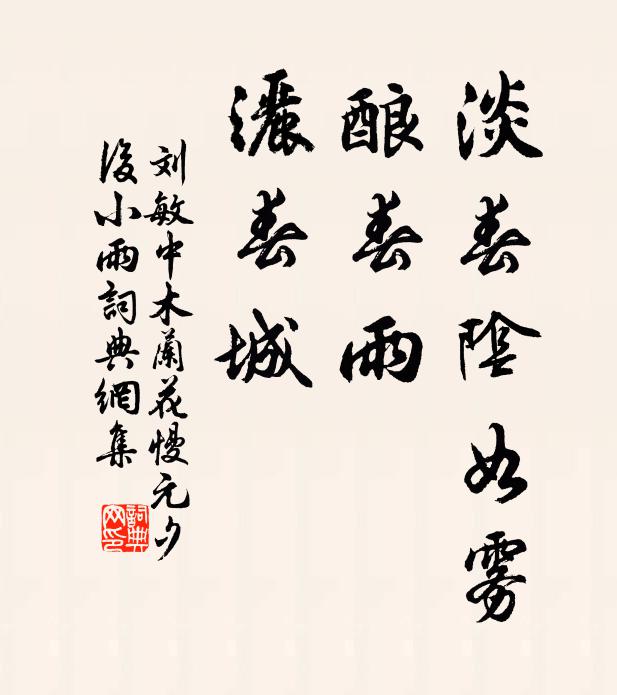 淡春陰如霧
酿春雨
灑春城
刘敏中木蘭花慢元夕
後小雨詞典網集
詞典
网印